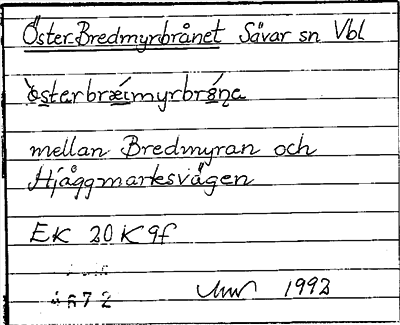 Öster-Bredmyrbrånet Sävar sn Vbl
mellan Bredmyran och
Hjåggmarksvägen
EK 20K 9f
4672
1992